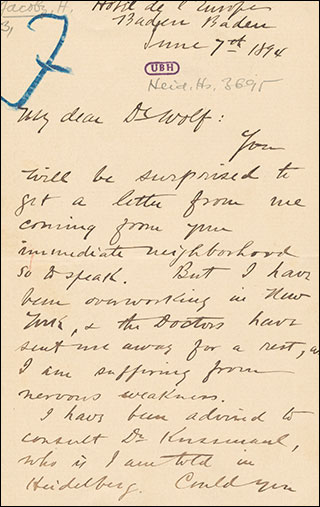 Jacobs, H.
Hotel de l'Europe
Baden Baden
June 7th 1894
UBH
Heid. Hs. 3695
My dear Dr Wolf:
You
will be surprised to
get a letter from me
coming from your
immediate neighborhood
so to speak. But I have
been overworking in New
York, & the Doctors have
sent me away for a rest, as
I am suffering from
nervous weakness.
I have been advised to
consult Dr Kussmaul,
who is I am told in
Heidelberg. Could you